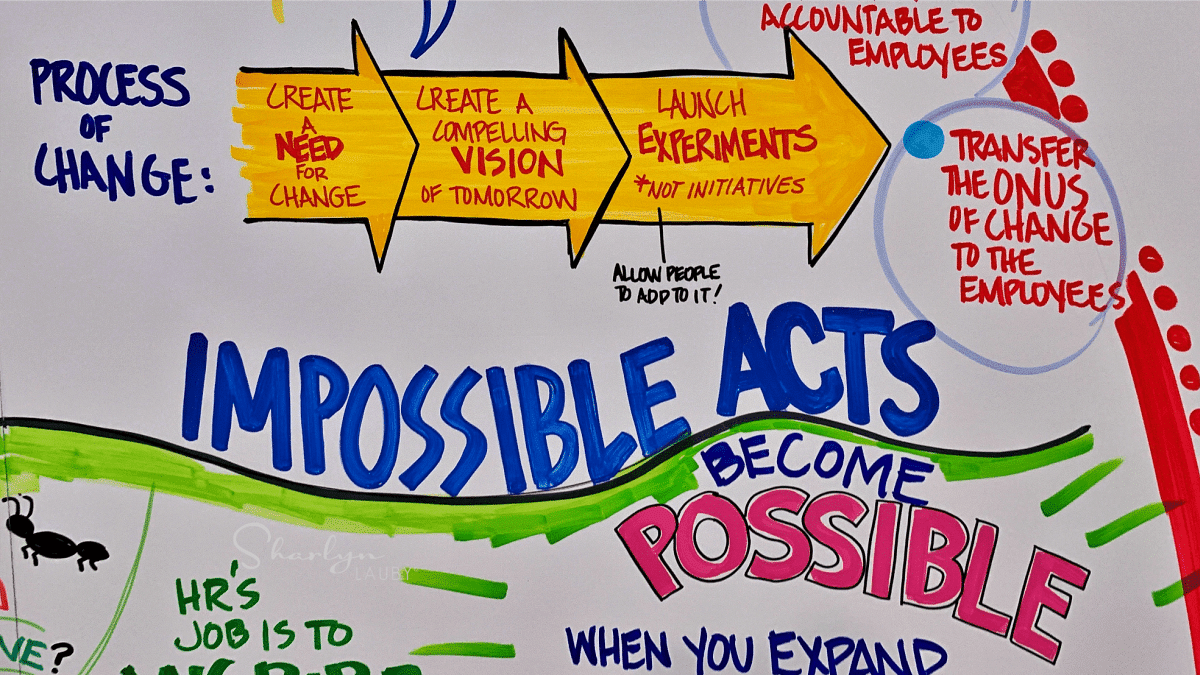 PROCESS
OF
CHANGE:
CREATE
A
NEED
FOR
CHANGE
CREATE A
COMPELLING
VISION
OF TOMORROW
LAUNCH
EXPERIMENTS
*NOT INITIATIVES
ALLOW PEOPLE
TO ADD TO IT!
ACCOUNTABLE TO
EMPLOYEES
TRANSFER
THE ONUS
OF CHANGE
TO THE
EMPLOYEES
IMPOSSIBLE ACTS
BECOME
POSSIBLE
WHEN YOU EXPAND
Sharlyn
LAUBY
HR'S
JOB IS TO
VE?